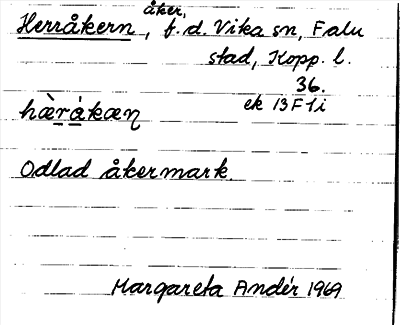 åker,
Herråkern, f.d. Vika sn, Falu
stad, Kopp. l.
36.
ek 13F1i
hàråkæn
Odlad åkermark.
Margareta Andér 1969